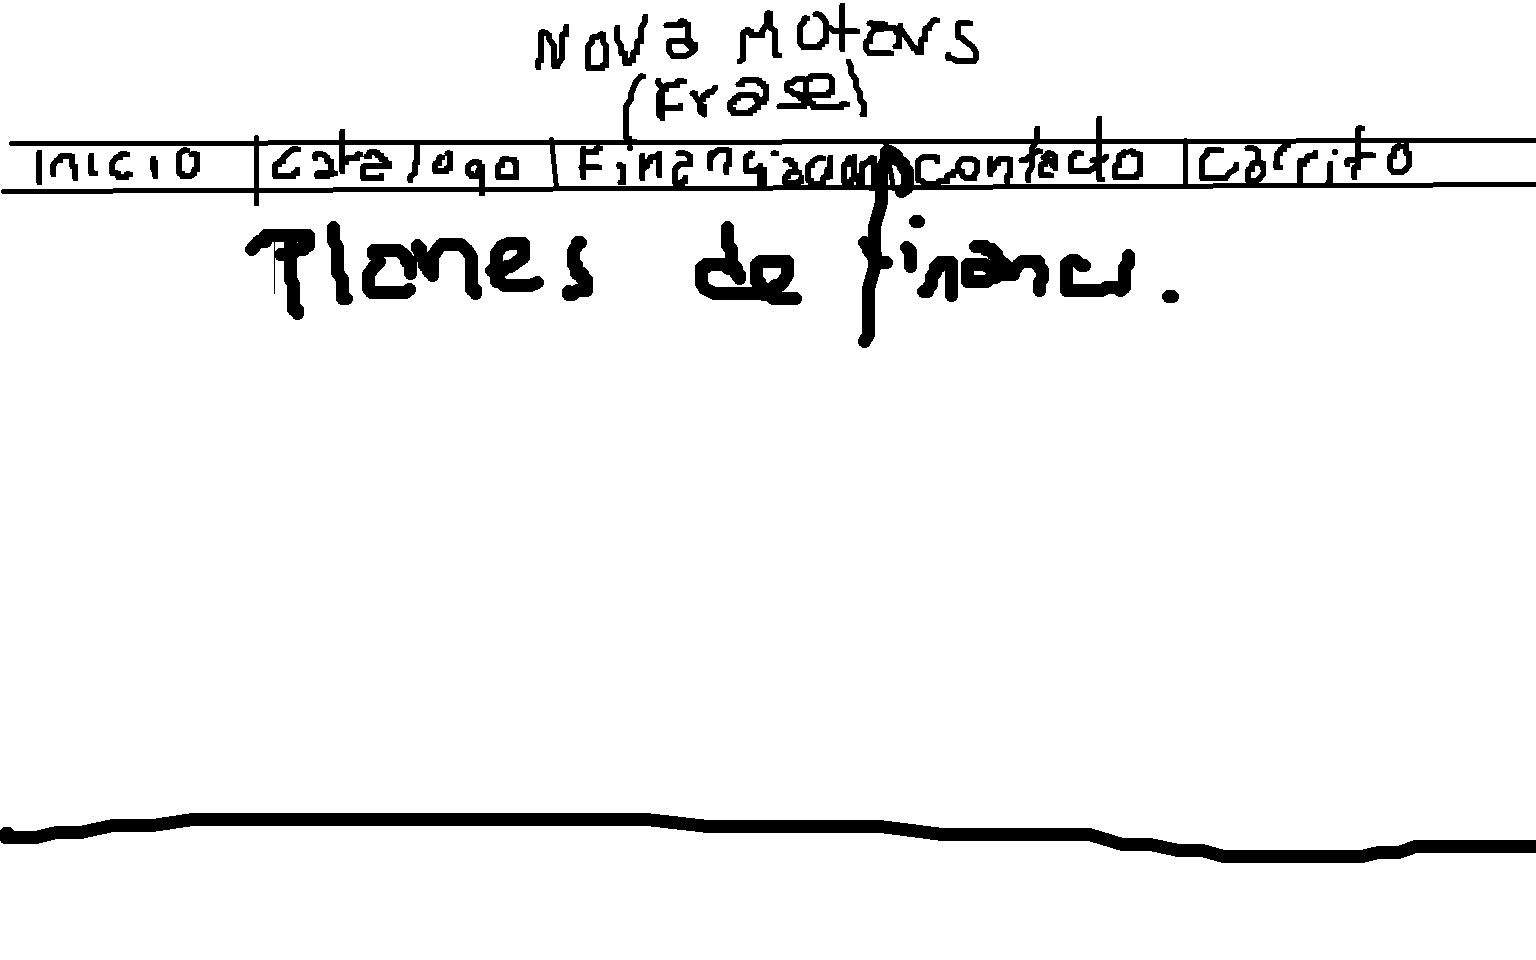 Nova Motors
(Frase)
Inicio Catalogo Financiacion Contacto Carrito
Planes de financ.